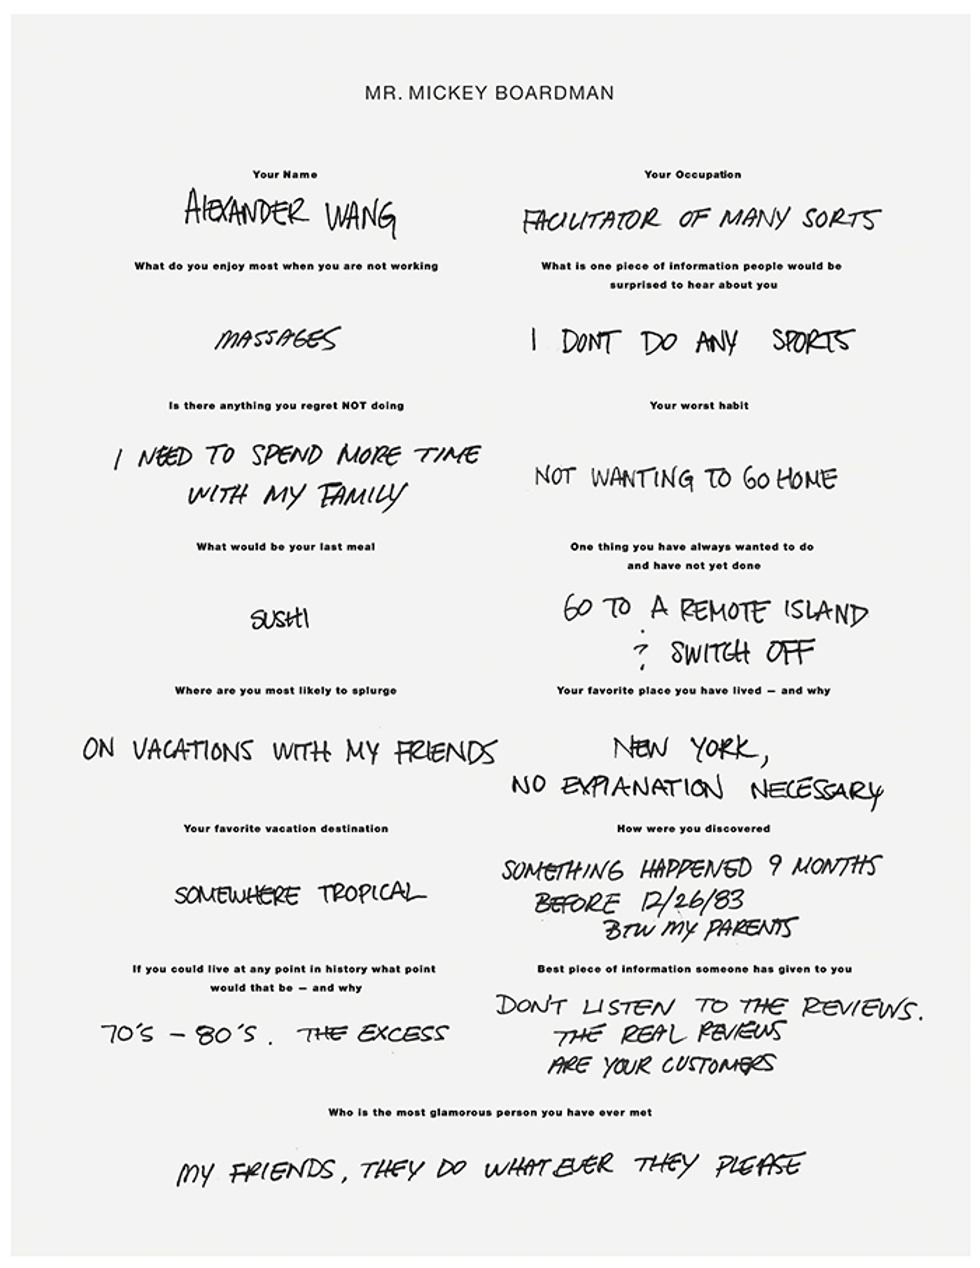 MR. MICKEY BOARDMAN
Your Name
ALEXANDER WANG
Your Occupation
FACILITATOR OF MANY SORTS
What do you enjoy most when you are not working
MASSAGES
What is one piece of information people would be
surprised to hear about you
I DONT DO ANY SPORTS
Is there anything you regret NOT doing
I NEED TO SPEND MORE TIME
WITH MY FAMILY
Your worst habit
NOT WANTING TO GO HOME
What would be your last meal
SUSHI
One thing you have always wanted to do
and have not yet done
GO TO A REMOTE ISLAND
SWITCH OFF
Where are you most likely to splurge
ON VACATIONS WITH MY FRIENDS
Your favorite place you have lived – and why
NEW YORK,
NO EXPLANATION NECESSARY
Your favorite vacation destination
SOMEWHERE TROPICAL
How were you discovered
SOMETHING HAPPENED 9 MONTHS
BEFORE 12/26/83
BTW MY PARENTS
If you could live at any point in history what point
would that be – and why
70'S – 80'S. THE EXCESS
Best piece of information someone has given to you
DON'T LISTEN TO THE REVIEWS.
THE REAL REVIEWS
ARE YOUR CUSTOMERS
Who is the most glamorous person you have ever met
MY FRIENDS, THEY DO WHATEVER THEY PLEASE